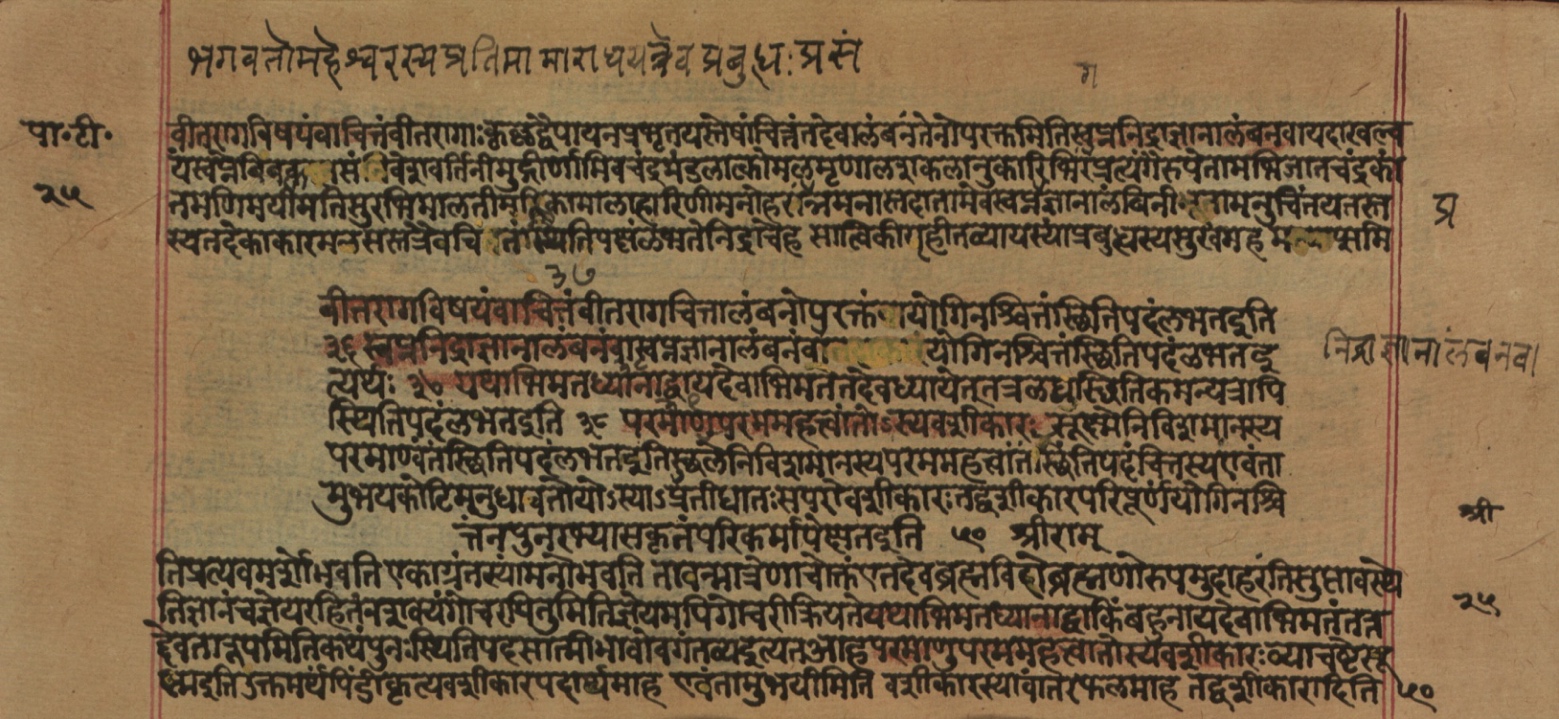 भगवतोमहेश्वरस्यप्रतिमामाराधयन्नेवप्रबुधःप्रसं
ग
पा॰टी॰
२५
वीतरागविषयंवाचित्तंवीतरागाःकृष्णद्वैपायनप्रभृतयस्तेषांचित्तंतदेवालंबनंतेनोपरक्तमितिस्वप्ननिद्राज्ञानालंबनंवायदाखल्व
यंस्वप्ने संनिवेशवर्तिनीमुद्गीर्णामिवचंद्रमंडलात्कोमलमृणालशकलानुकारिभिरंप्रत्यंगैरुपेतामभिजातचंद्रकां
तमणिमयीमतिसुरभिमालतीमल्लिकामालाहारिणीमनोहरां तदातामेवस्वप्नज्ञानालंबिनी तामनुचिंतयतस्त
प्र
स्यतदेकाकारमनसस्तत्रैवचि तंस्थितिपदंलभतेनिद्राचेह सात्विकीगृहीतव्यायस्यांप्रबुद्धस्यसुखमहम
३७
वीतरागविषयंवाचित्तंवीतरागचित्तालंबनोपरक्तं योगिनश्चित्तंस्थितिपदंलभतइति
स्वप्ननिद्राज्ञानालंबनंवास्वप्नज्ञानालंबनंवा योगिनश्चित्तंस्थितिपदंलभतइ
निद्राज्ञानालंबनवा
त्यर्थः यथाभिमतध्यानाद्वायदेवाभिमतंतदेवध्यायेत्तत्रलब्धस्थितिकमन्यत्रापि
स्थितिपदंलभतइति ३९ परमाणुपरममहत्त्वांतोऽस्यवशीकारः सूक्ष्मेनिविशमानस्य
परमाण्वंतंस्थितिपदंलभतइतिस्थूलेनिविशमानस्यपरममहत्वांतंस्थितिपदंचित्तस्यएवंता
मुभयकोटिमनुधावतोयोऽस्याऽप्रतीघातःसपरोवशीकारःतद्वशीकारपरिपूर्णंयोगिनश्चि
श्री
त्तंनपुनरभ्यासकृतंपरिकर्मापेक्षतइति ५० श्रीराम्
तिप्रत्यवमर्शोभवति एकाग्रंतस्यांमनोभवति तावन्मात्रेणचोक्तंएतदेवब्रह्मविदोब्रह्मणोरूपमुदाहरंतिसुप्तावस्थे
२५
तिज्ञानंचज्ञेयरहितंनशक्यंगोचरयितुमितिज्ञेयमपिगोचरीक्रियतेयथाभिमतध्यानाद्वाकिंबहुनायदेवाभिमतंतत्त
द्देवतारूपमितिकथंपुनःस्थितिपदसात्मीभावोवगंतव्यइत्यतआहपरमाणुपरममहत्वांतोस्यवशीकारःव्याचष्टेसू
क्ष्मइतिउक्तमर्थंपिंडीकृत्यवशीकारपदार्थमाह एवंतामुभयीमिति वशीकारस्यावांतरफलमाह तद्वशीकारादिति ५०